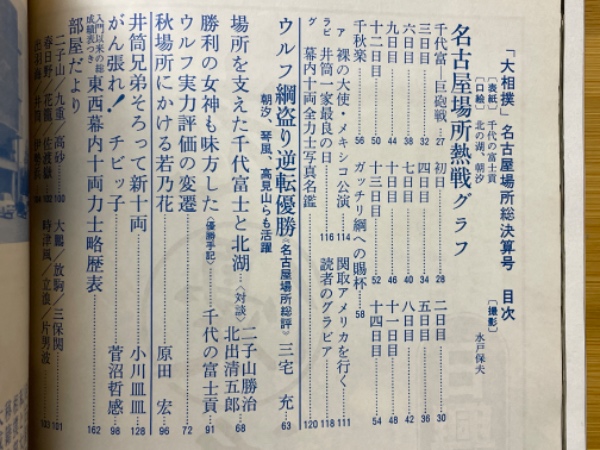 「大相撲」名古屋場所総決算号　目次
［表紙］千代の富士貢
［口絵］北の湖、朝汐
［撮影］水戸保夫
名古屋場所熱戦グラフ
千代富―巨砲戦…27
初日…28
二日目…30
三日目…32
四日目…34
五日目…36
六日目…38
七日目…40
八日目…42
九日目…44
十日目…46
十一日目…48
十二日目…50
十三日目…52
十四日目…54
千秋楽…56
ガッチリ綱への賜杯…58
グラビア
裸の大使・メキシコ公演…114
関取アメリカを行く…111
井筒一家最良の日…116
読者のグラビア…118
幕内十両全力士写真名鑑…120
ウルフ綱盗り逆転優勝《名古屋場所総評》三宅　充…63
朝汐、琴風、高見山らも活躍
場所を支えた千代富士と北湖…〈対談〉二子山勝治 北出清五郎…68
勝利の女神も味方した〈優勝手記〉…千代の富士貢…91
ウルフ実力評価の変遷…72
秋場所にかける若乃花…原田　宏…96
井筒兄弟そろって新十両…小川皿皿…128
がん張れ！　チビッ子…菅沼哲感…98
入門以来の総成績表つき 東西幕内十両力士略歴表…162
部屋だより
二子山／九重／高砂…100
大鵬／放駒／三保関…101
春日野／花籠／佐渡嶽…102
時津風／立浪／片男波…103